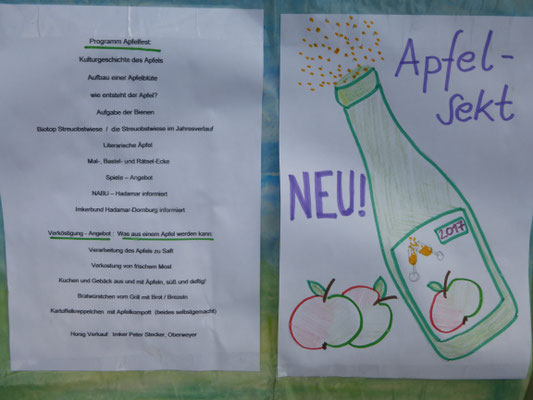 Programm Apfelfest:
Kulturgeschichte des Apfels
Aufbau einer Apfelblüte
wie entsteht der Apfel?
Aufgabe der Bienen
Biotop Streuobstwiese / die Streuobstwiese im Jahresverlauf
Literarische Äpfel
Mal-, Bastel- und Rätsel-Ecke
Spiele – Angebot
NABU – Hadamar informiert
Imkerbund Hadamar-Dornburg informiert
Verköstigung - Angebot : Was aus einem Apfel werden kann:
Verarbeitung des Apfels zu Saft
Verkostung von frischem Most
Kuchen und Gebäck aus und mit Äpfeln, süß und deftig!
Bratwürstchen vom Grill mit Brot / Brezeln
Kartoffelkreppelchen mit Apfelkompott (bestes selbstgemacht)
Honig Verkauf Imker Peter Stecker, Oberweyer
Apfel-
Sekt
NEU!
2017